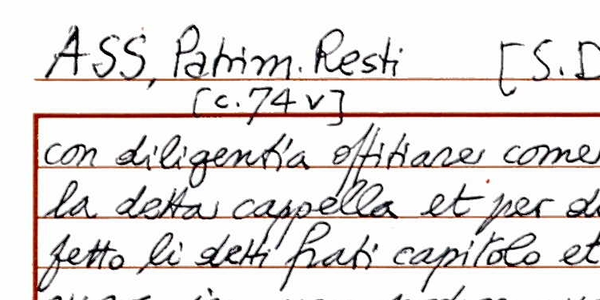 ASS, Patrim. Resti [S.D
[c.74v]
con diligentia offitiare come
la detta cappella et per d
fetto li detti frati capitolo et